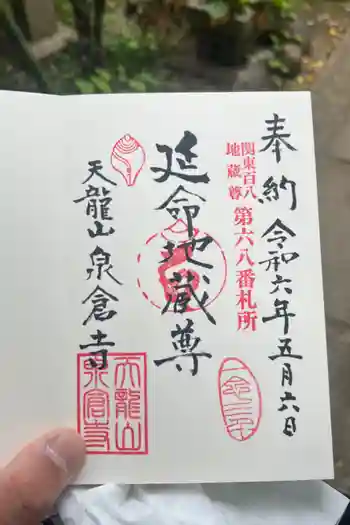 奉納 令和六年五月六日
関東百八
地蔵尊 第六八番札所
延命地蔵尊
天龍山 泉倉寺
天龍山
泉倉寺